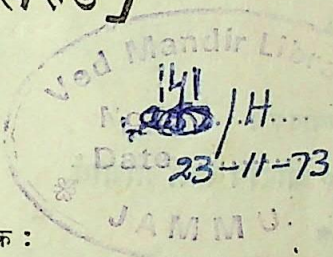 Ved Mandir Lib
No. 141/H....
Date 23-11-73
JAMMU.
क :